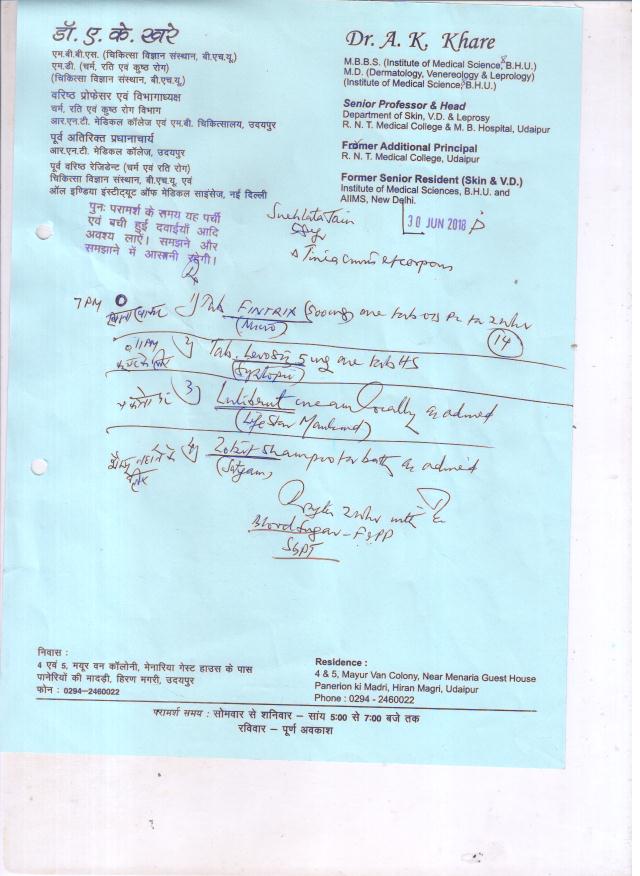 डॉ. ए. के. खरे
एम.बी.बी.एस. (चिकित्सा विज्ञान संस्थान, बी.एच.यू.)
एम.डी. (चर्म, रति एवं कुष्ठ रोग)
(चिकित्सा विज्ञान संस्थान, बी.एच.यू.)
वरिष्ठ प्रोफेसर एवं विभागाध्यक्ष
चर्म, रति एवं कुष्ठ रोग विभाग
आर.एन.टी. मेडिकल कॉलेज एवं एम.बी. चिकित्सालय, उदयपुर
पूर्व अतिरिक्त प्रधानाचार्य
आर.एन.टी. मेडिकल कॉलेज, उदयपुर
पूर्व वरिष्ठ रेजिडेन्ट (चर्म एवं रति रोग)
चिकित्सा विज्ञान संस्थान, बी.एच.यू. एवं
ऑल इण्डिया इंस्टीट्यूट ऑफ मेडिकल साइंसेज, नई दिल्ली
Dr. A. K. Khare
M.B.B.S. (Institute of Medical Science, B.H.U.)
M.D. (Dermatology, Venereology & Leprology)
(Institute of Medical Science, B.H.U.)
Senior Professor & Head
Department of Skin, V.D. & Leprosy
R. N. T. Medical College & M. B. Hospital, Udaipur
Former Additional Principal
R. N. T. Medical College, Udaipur
Former Senior Resident (Skin & V.D.)
Institute of Medical Sciences, B.H.U. and
AIIMS, New Delhi.
पुनः परामर्श के समय यह पर्ची
एवं बची हुई दवाईयाँ आदि
अवश्य लाऐं। समझने और
समझाने में आसानी रहेगी।
30 JUN 2018
Snehlata Jain
Tinea cruris et corporis
7 PM
1) Tab FINTRIX (500mg) one tab OD PC for 2 wks
(Micro)
14
11 PM
2) Tab. 5 mg one tab HS
3) cream locally as advised
(LifeStar Mankind)
4) shampoo for bath as advised
(Satyam)
after 2 wks with
Blood Sugar - F & PP
SGPT
निवास :
4 एवं 5, मयूर वन कॉलोनी, मेनारिया गेस्ट हाउस के पास
पानेरियों की मादड़ी, हिरण मगरी, उदयपुर
फोन : 0294-2460022
Residence :
4 & 5, Mayur Van Colony, Near Menaria Guest House
Panerion ki Madri, Hiran Magri, Udaipur
Phone : 0294 - 2460022
परामर्श समय : सोमवार से शनिवार – सांय 5:00 से 7:00 बजे तक
रविवार – पूर्ण अवकाश